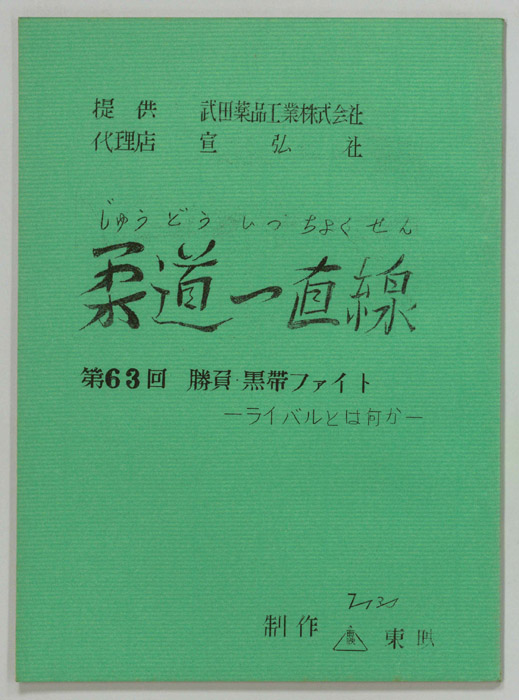 提供 武田薬品工業株式会社
代理店 宣弘社
じゅうどういっちょくせん
柔道一直線
第63回 勝負・黒帯ファイト
―ライバルとは何か―
制作 東映